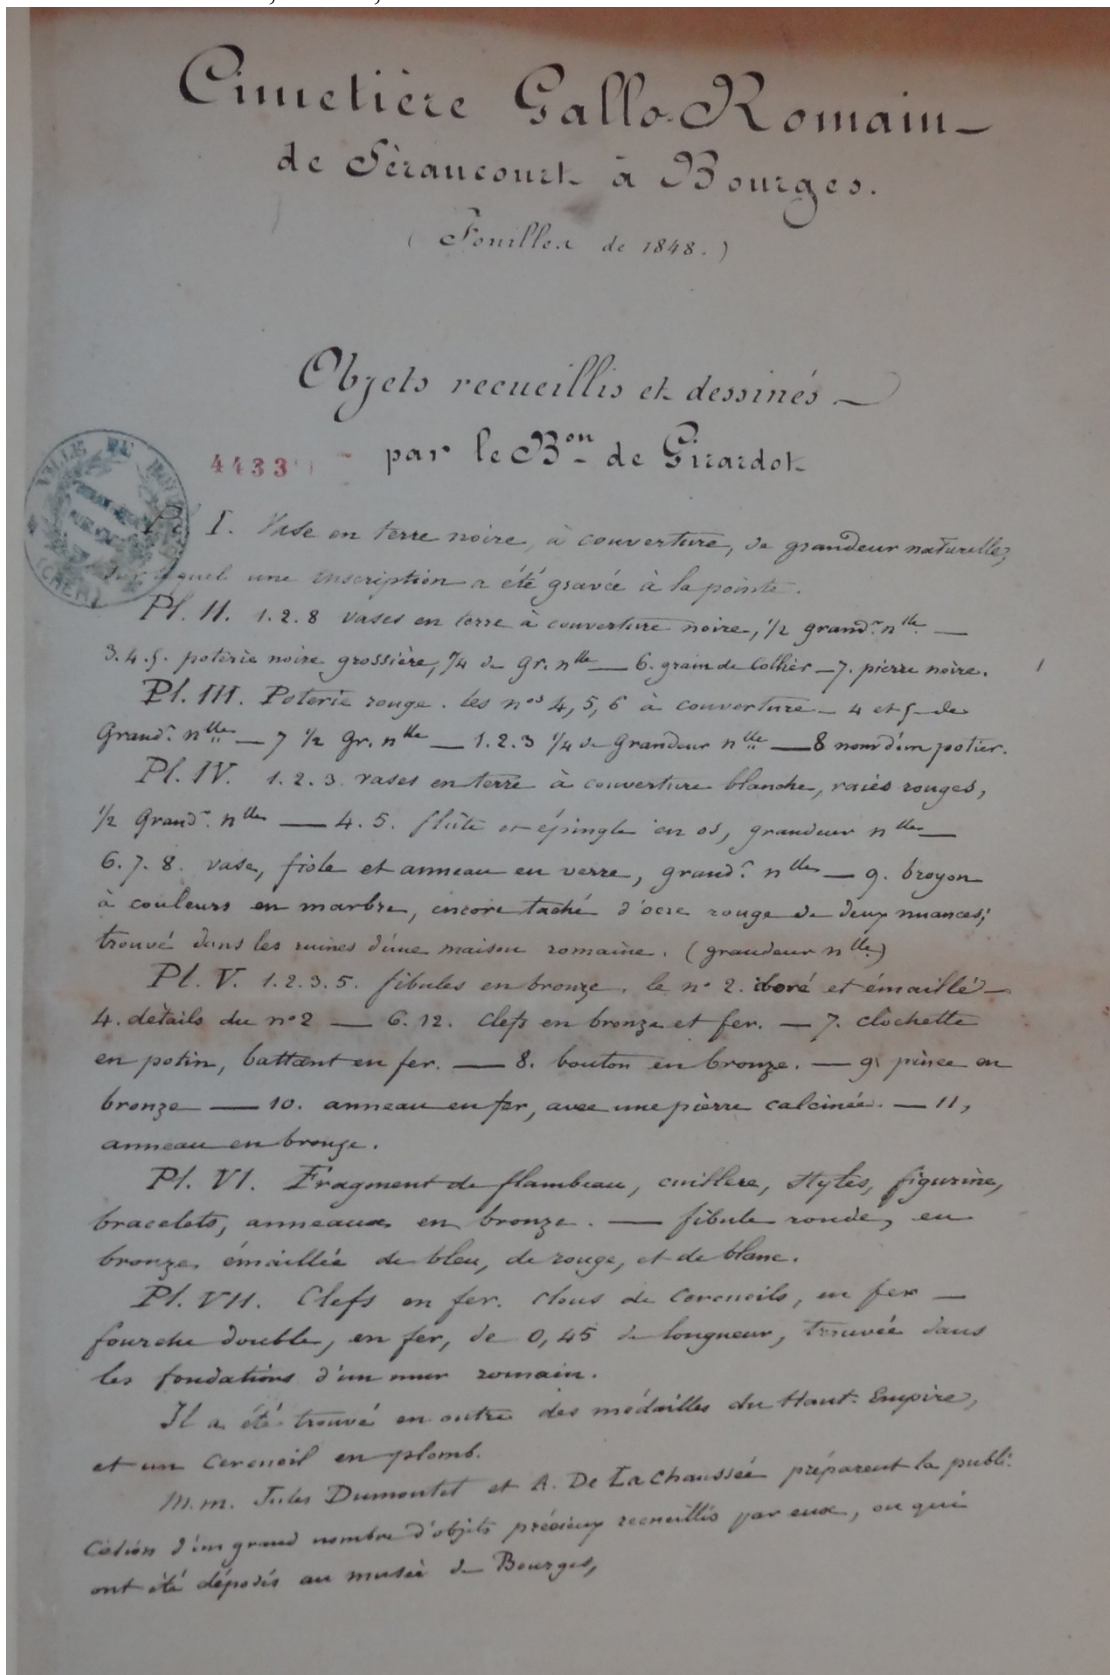 Cimetière Gallo-Romain
de Sérancourt à Bourges.
(Fouilles de 1848.)
Objets recueillis et dessinés
par le Bon de Girardot
44331
VILLE DE BOURGES
(CHER)
Pl. I. Vase en terre noire, à couverture, de grandeur naturelle,
sur lequel une inscription a été gravée à la pointe.
Pl. II. 1. 2. 8 vases en terre à couverture noire, 1/2 grandr. nlle. —
3. 4. 5. poterie noire grossière, 1/4 de gr. nlle — 6. grain de Collier — 7. pierre noire.
Pl. III. Poterie rouge. les nos 4, 5, 6 à couverture — 4 et 5 de
Grandr. nlle — 7 1/2 Gr. nlle — 1. 2. 3 1/4 de Grandeur nlle — 8 nom d'un potier.
Pl. IV. 1. 2. 3. vases en terre à couverture blanche, raies rouges,
1/2 Grandr. nlle — 4. 5. flûte et épingle en os, grandeur nlle —
6. 7. 8. vase, fiole et anneau en verre, grandr. nlle — 9. broyon
à couleurs en marbre, encore taché d'ocre rouge de deux nuances;
trouvé dans les ruines d'une maison romaine. (grandeur nlle)
Pl. V. 1. 2. 3. 5. fibules en bronze. le no 2. doré et émaillé —
4. détails du no 2 — 6. 12. clefs en bronze et fer. — 7. clochette
en potin, battant en fer. — 8. bouton en bronze. — 9. pince en
bronze — 10. anneau en fer, avec une pierre calcinée. — 11,
anneau en bronze.
Pl. VI. Fragment de flambeau, cuillere, styles, figurine,
bracelets, anneaux en bronze. — fibule ronde, en
bronze émaillée de bleu, de rouge, et de blanc.
Pl. VII. Clefs en fer. clous de Cercueils, en fer —
fourche double, en fer, de 0,45 de longueur, trouvée dans
les fondations d'un mur romain.
Il a été trouvé en outre des médailles du Haut-Empire,
et un Cercueil en plomb.
M.m. Jules Dumoutet et A. De La Chaussée préparent la publi-
cation d'un grand nombre d'objets précieux recueillis par eux, ou qui
ont été déposés au musée de Bourges,